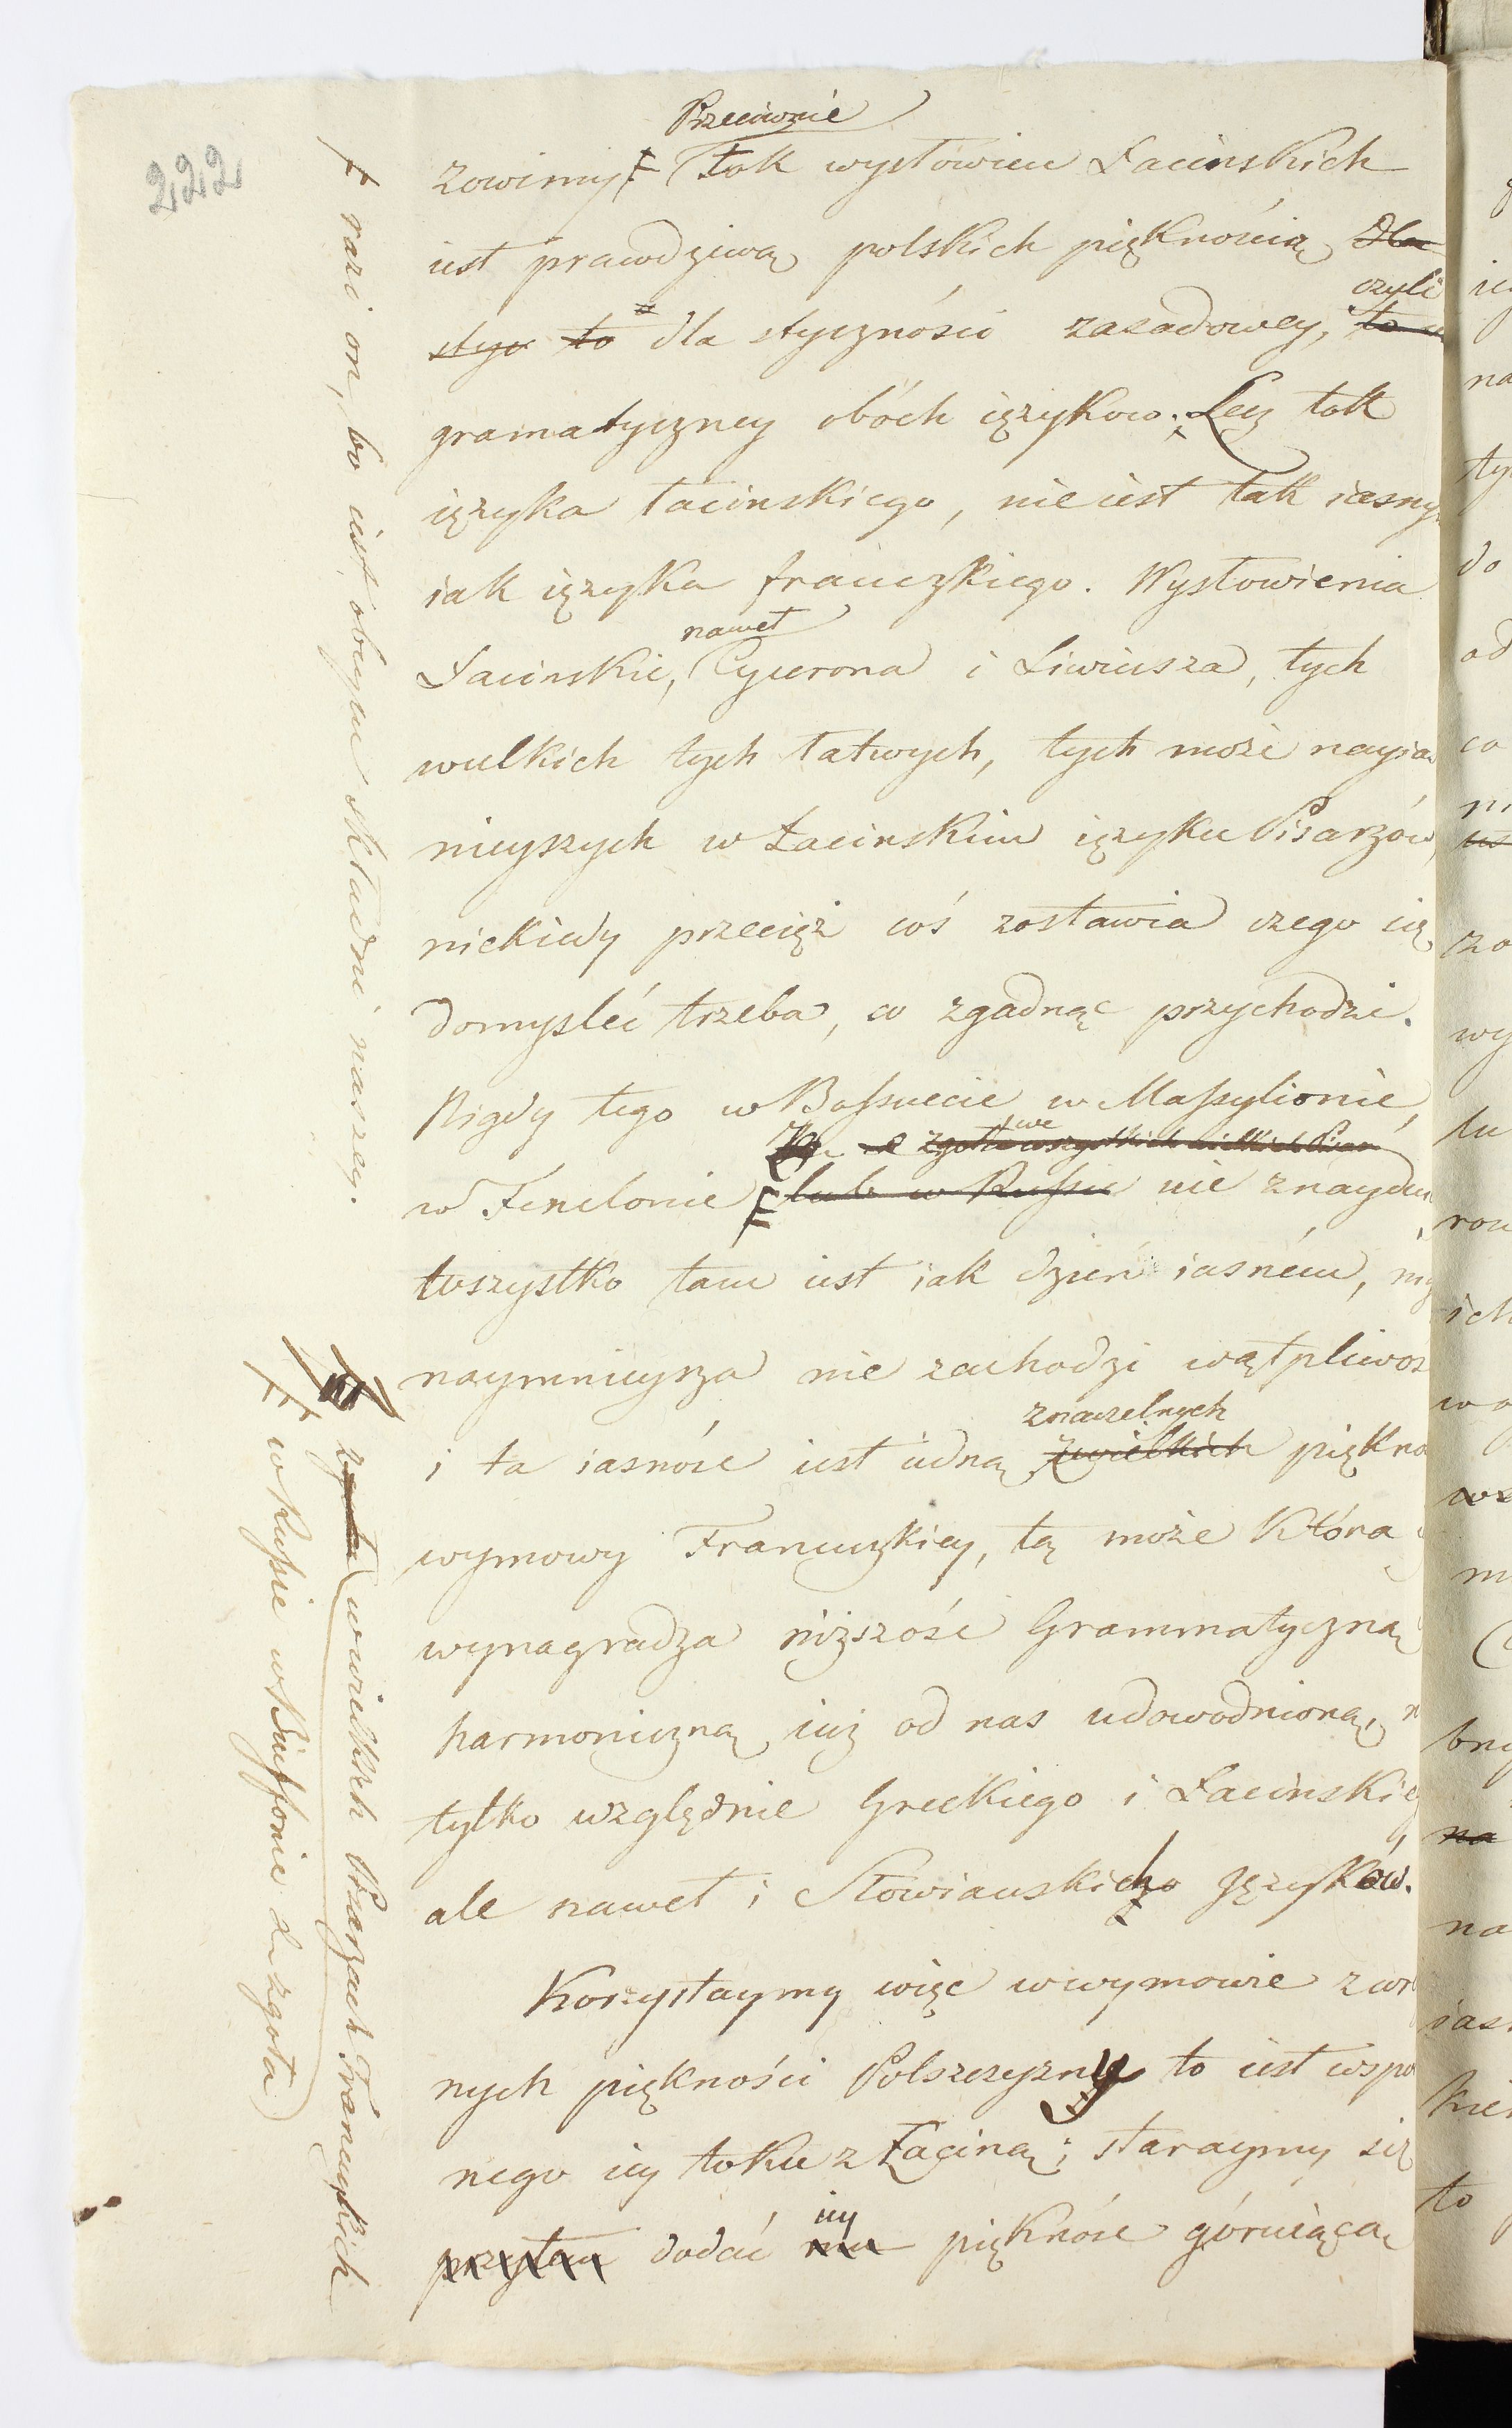 222
Przeciwnie
zowimy Ŧ Tok wysłowień Łacinskich
iest prawdziwą polskich pięknością dla
stycz to dla styczności zasadowey, to
czyli
gramatyczney obóch ięzykow. Lecz tok
ięzyka łacinskiego, nie iest tak iasny
iak ięzyka francuzkiego. Wysłowienia
nawet
Łacinskie, Cycerona i Liwiusza, tych
wielkich tych łatwych, tych może nayia
nieyszych w Łacinskim ięzyku Pisarzów,
niekiedy przecięż coś zostawia czego się
domysleć trzeba, co zgadnąć przychodzi.
Nigdy tego w Bossuecie w Massylionie,
zgoła we wszystkich wielkich Pisar
w Fenelonie lub w Russie nie znaydu
wszystko tam iest iak dzień iasném,
naymnieysza nie zachodzi wątpliwos
znaczelnych
i ta iasność iest iedną z wielkich piękno
wymowy Francuzkiey, tą może Która
wynagradza niższość Grammatyczną
harmoniczną iuż od nas udowodnioną,
tylko względnie Greckiego i Łacinskieg
ale nawet i Słowianskich Języków.
Korzystaymy więc w wymowie z wro
nych piękności Polszczyzny to iest wspol
nego iey toku z Łaciną; staraymy się
iey
przytem dodać mu piękność góruiącą
Ŧ razi on, bo iest obcym składni naszey.
zgoła w wielkich Pisarzach Francuzkich
w Russie w Buffonie a zgoła